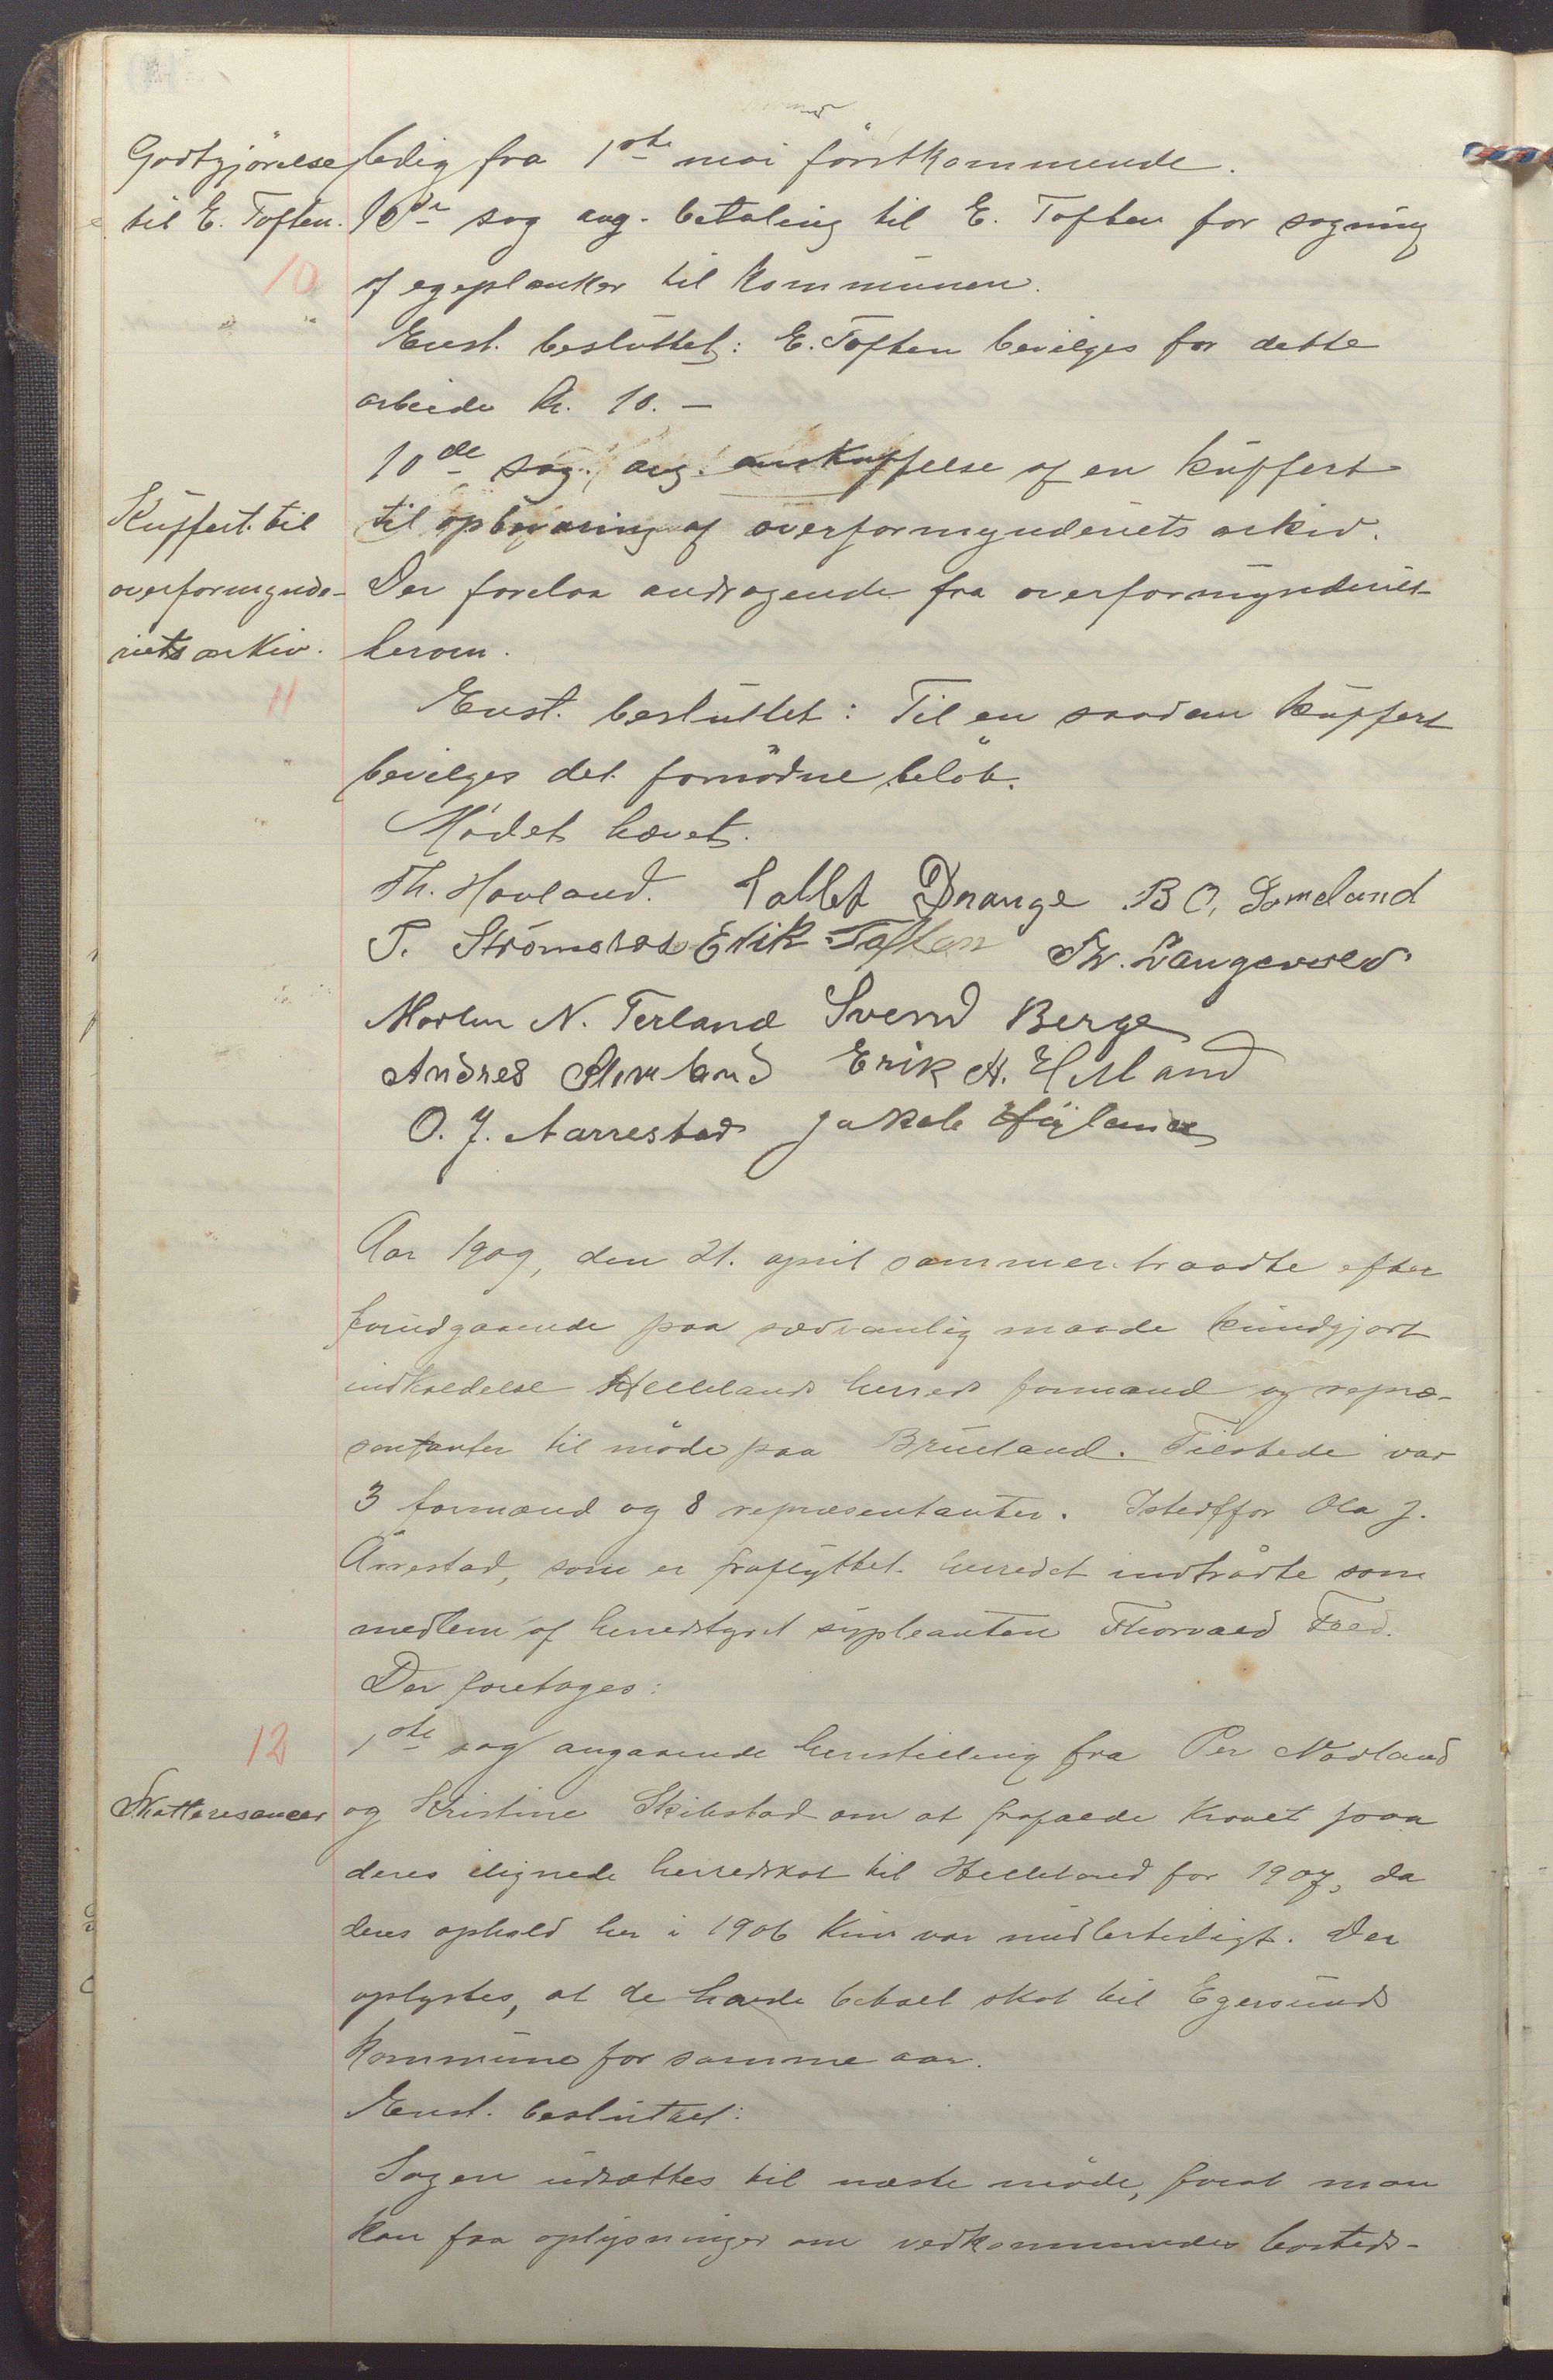 Godtgjörelse
til E. Toften.
10
ledig fra 1ste mai förstkommende.
10de sag ang. betaling til E. Toften for sagning
af egeplanker til kommunen.
Enst. besluttet: E. Toften bevilges for dette
arbeide kr. 10.-
10de sag. ang. anskaffelse af en kuffert
Kuffert til
overformynde-
riets arkiv.
11
til opbevaring af overformynderiets arkiv.
Der forelaa andragende fra overformynderiet
herom.
Enst. besluttet: Til en saadan kuffert
bevilges det fornödne belöb.
Mödet hævet.
Th. Hovland. Tallef Drange B O, Someland
T. Strömstad Erik Toften Th. Langevold
Morten N. Terland Svend Berge
Andres Slimland Erik A. Helland
O. J. Aarrestad Jakob Höyland
Aar 1909, den 21. april sammentraadte efter
forudgaaende paa sædvanlig maade kundgjort
indkaldelse Hellelands herreds formænd og repræ-
sentanter til möde paa Brueland. Tilstede var
3 formænd og 8 repræsentanter. Istedffor Ola J.
Årrestad, som er fraflyttet herredet indtrådte som
medlem af herredstyret supleanten Thorvald Fred.
Der foretages:
12
Skatteresancer
1ste sag angaaende henstilling fra Per Nodland
og Kristine Skibstad om at frafalde kravet paa
deres ilignede herredskat til Helleland for 1907, da
deres ophold her i 1906 kun var midlertidigt. Der
oplystes, at de havde betalt skat til Egersunds
kommune for samme aar.
Enst. besluttet:
Sagen udsættes til næste möde, forat man
kan faa oplysninger om vedkommendes bosteds-